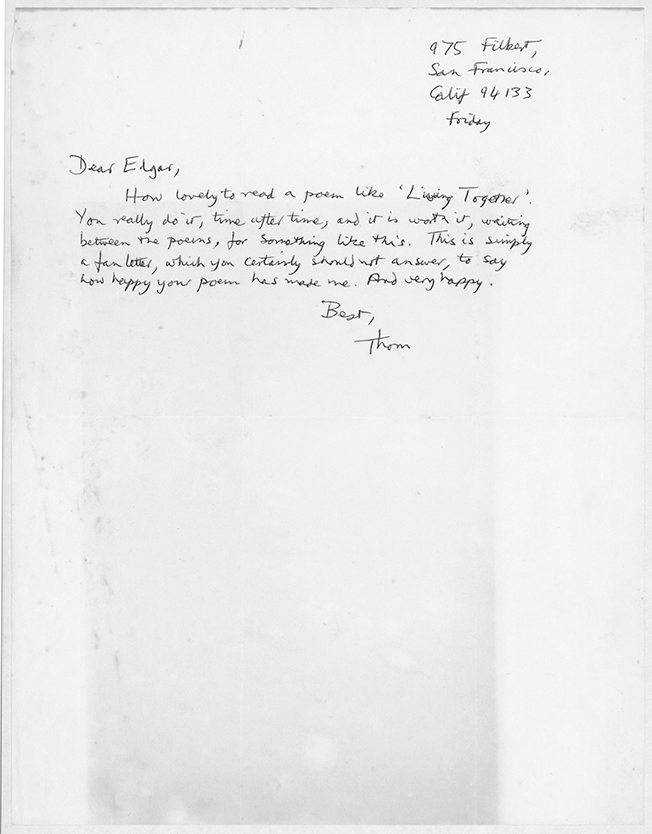 975 Filbert,
San Francisco,
Calif 94133
Friday
Dear Edgar,
How lovely to read a poem like 'Living Together'.
You really do it, time after time, and it is worth it, waiting
between the poems, for something like this. This is simply
a fan letter, which you certainly should not answer, to say
how happy your poem has made me. And very happy.
Best,
Thom